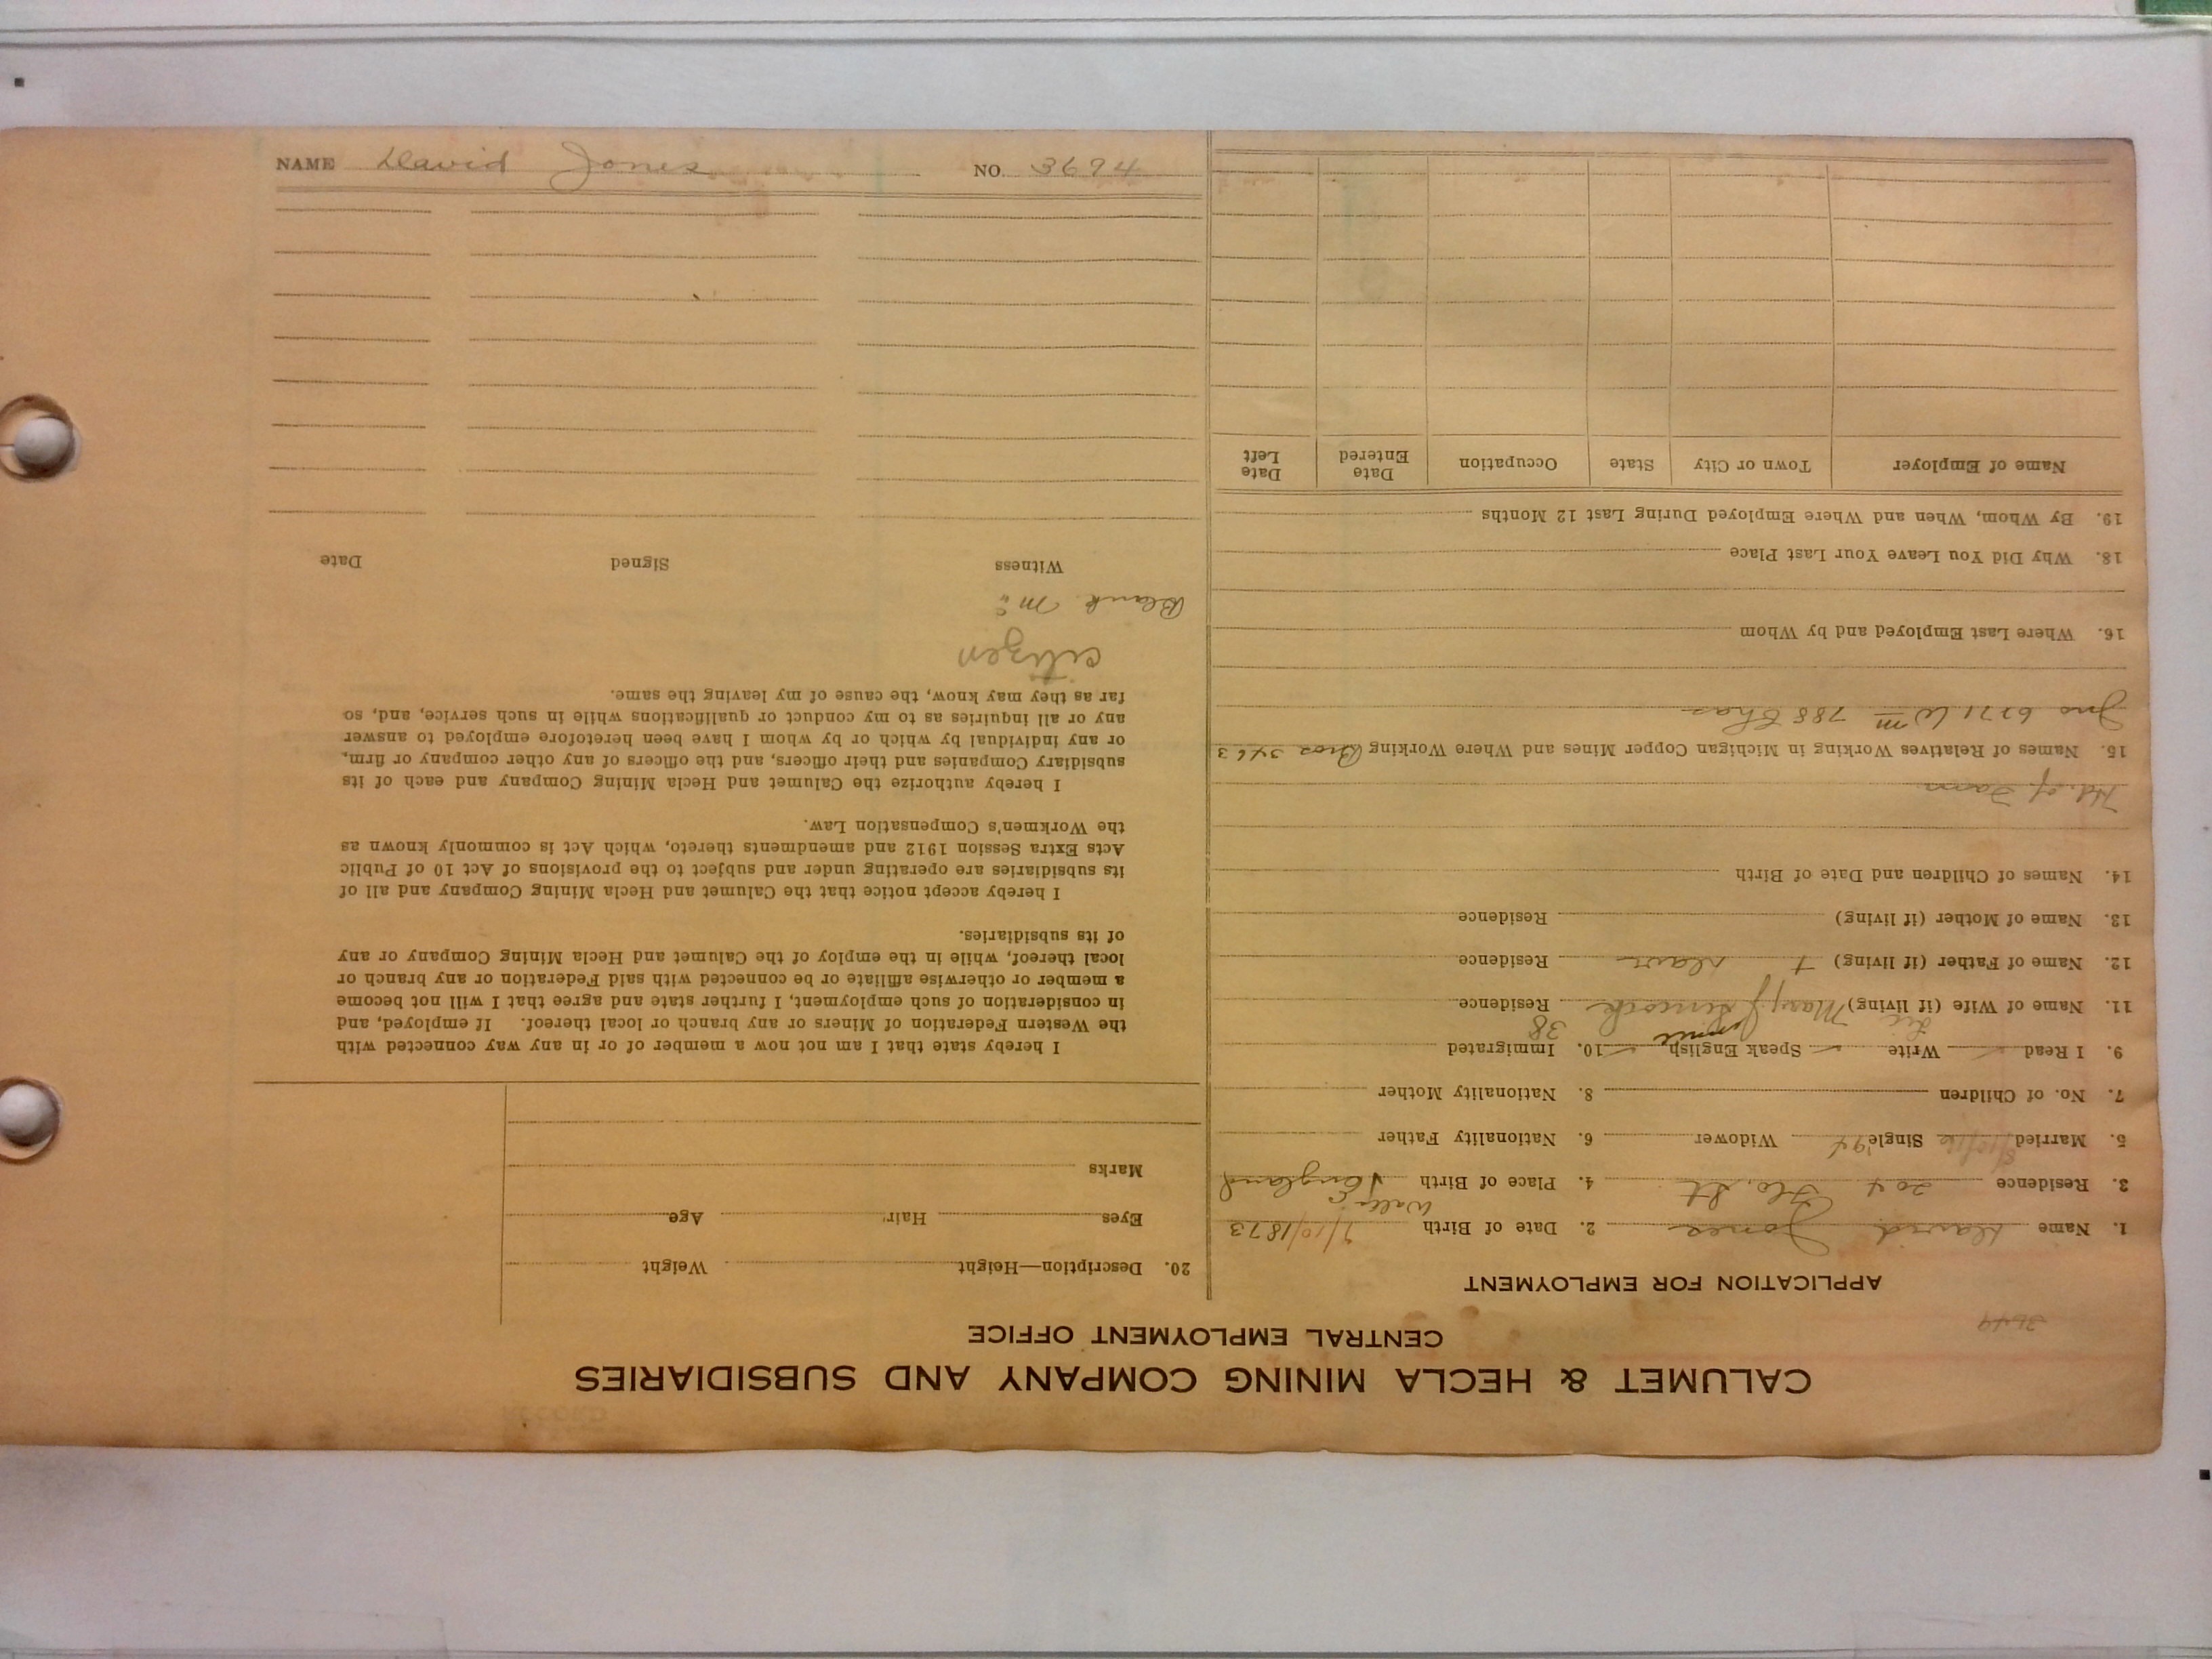 CALUMET & HECLA MINING COMPANY AND SUBSIDIARIES
CENTRAL EMPLOYMENT OFFICE
APPLICATION FOR EMPLOYMENT
1. Name David Jones 2. Date of Birth 7/10/1873
3. Residence 204 Flo. St 4. Place of Birth England
5. Married Single Widower 6. Nationality Father
7. No. of Children 8. Nationality Mother
9. I Read Write Speak English 10. Immigrated
38
11. Name of Wife (if living) Mary J Residence
12. Name of Father (if living) Residence
13. Name of Mother (if living) Residence
14. Names of Children and Date of Birth
15. Names of Relatives Working in Michigan Copper Mines and Where Working Bros 3463
Jno 6171 Wm 788 Chas
16. Where Last Employed and by Whom
18. Why Did You Leave Your Last Place
19. By Whom, When and Where Employed During Last 12 Months
Name of Employer Town or City State Occupation Date Entered Date Left
20. Description—Height Weight
Eyes Hair Age
Marks
I hereby state that I am not now a member of or in any way connected with
the Western Federation of Miners or any branch or local thereof. If employed, and
in consideration of such employment, I further state and agree that I will not become
a member or otherwise affiliate or be connected with said Federation or any branch or
local thereof, while in the employ of the Calumet and Hecla Mining Company or any
of its subsidiaries.
I hereby accept notice that the Calumet and Hecla Mining Company and all of
its subsidiaries are operating under and subject to the provisions of Act 10 of Public
Acts Extra Session 1912 and amendments thereto, which Act is commonly known as
the Workmen's Compensation Law.
I hereby authorize the Calumet and Hecla Mining Company and each of its
subsidiary Companies and their officers, and the officers of any other company or firm,
or any individual by which or by whom I have been heretofore employed to answer
any or all inquiries as to my conduct or qualifications while in such service, and, so
far as they may know, the cause of my leaving the same.
citizen
Blank
Witness Signed Date
NAME David Jones NO. 3694